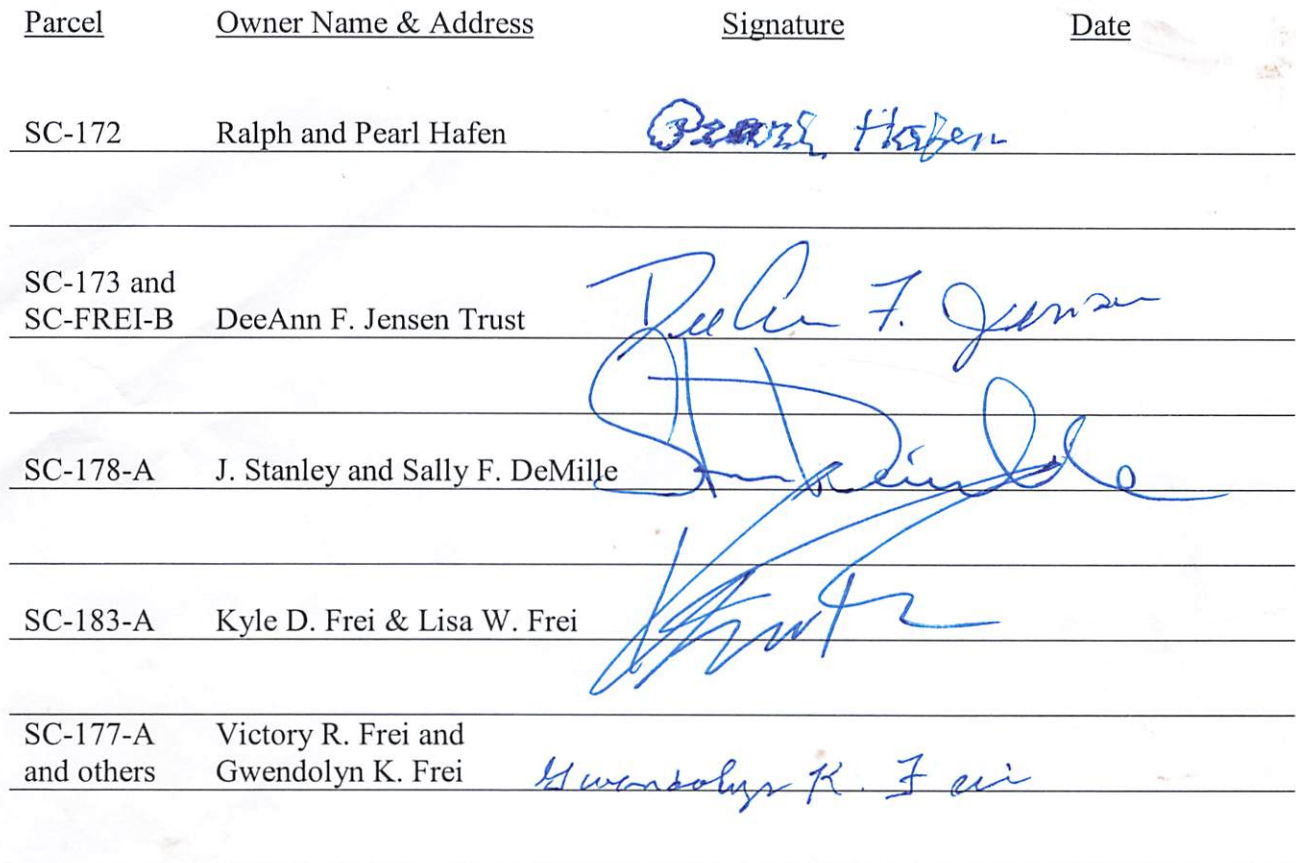 Parcel Owner Name & Address Signature Date
SC-172 Ralph and Pearl Hafen Pearl Hafen
SC-173 and
SC-FREI-B DeeAnn F. Jensen Trust DeeAnn F. Jensen
SC-178-A J. Stanley and Sally F. DeMille Stan DeMille
SC-183-A Kyle D. Frei & Lisa W. Frei
SC-177-A Victory R. Frei and
and others Gwendolyn K. Frei Gwendolyn K. Frei